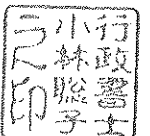 行政書士
小林聡子
之印